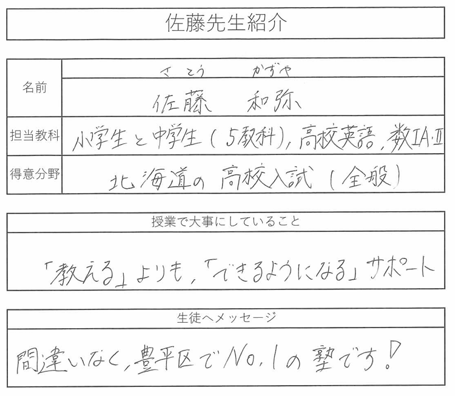 佐藤先生紹介
さとう かずや
名前 佐藤 和弥
担当教科 小学生と中学生(5教科),高校英語,数ⅠA・Ⅱ
得意分野 北海道の高校入試(全般)
授業で大事にしていること
「教える」よりも,「できるようになる」サポート
生徒へメッセージ
間違いなく,豊平区でNo.1の塾です!